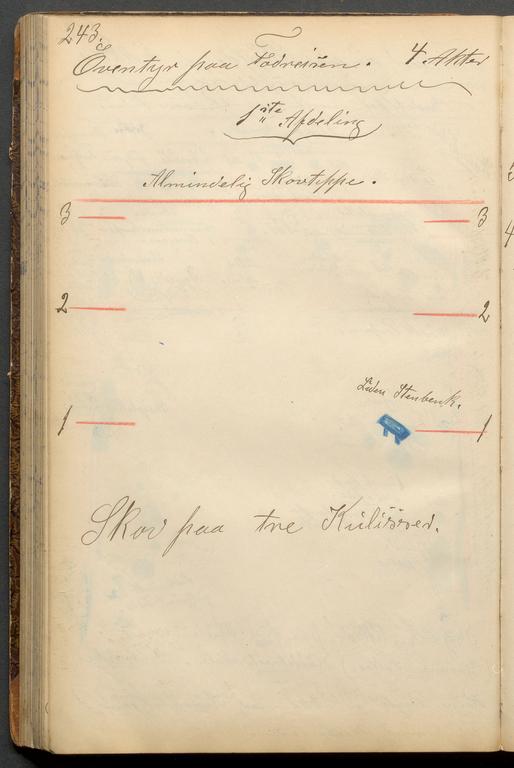 243.
Eventyr paa Fodreisen. 4 Akter
1ste Afdeling
Almindelig Skovteppe.
3 3
2 2
Liden Stenbenk.
1 1
Skov paa tre Kulisser.